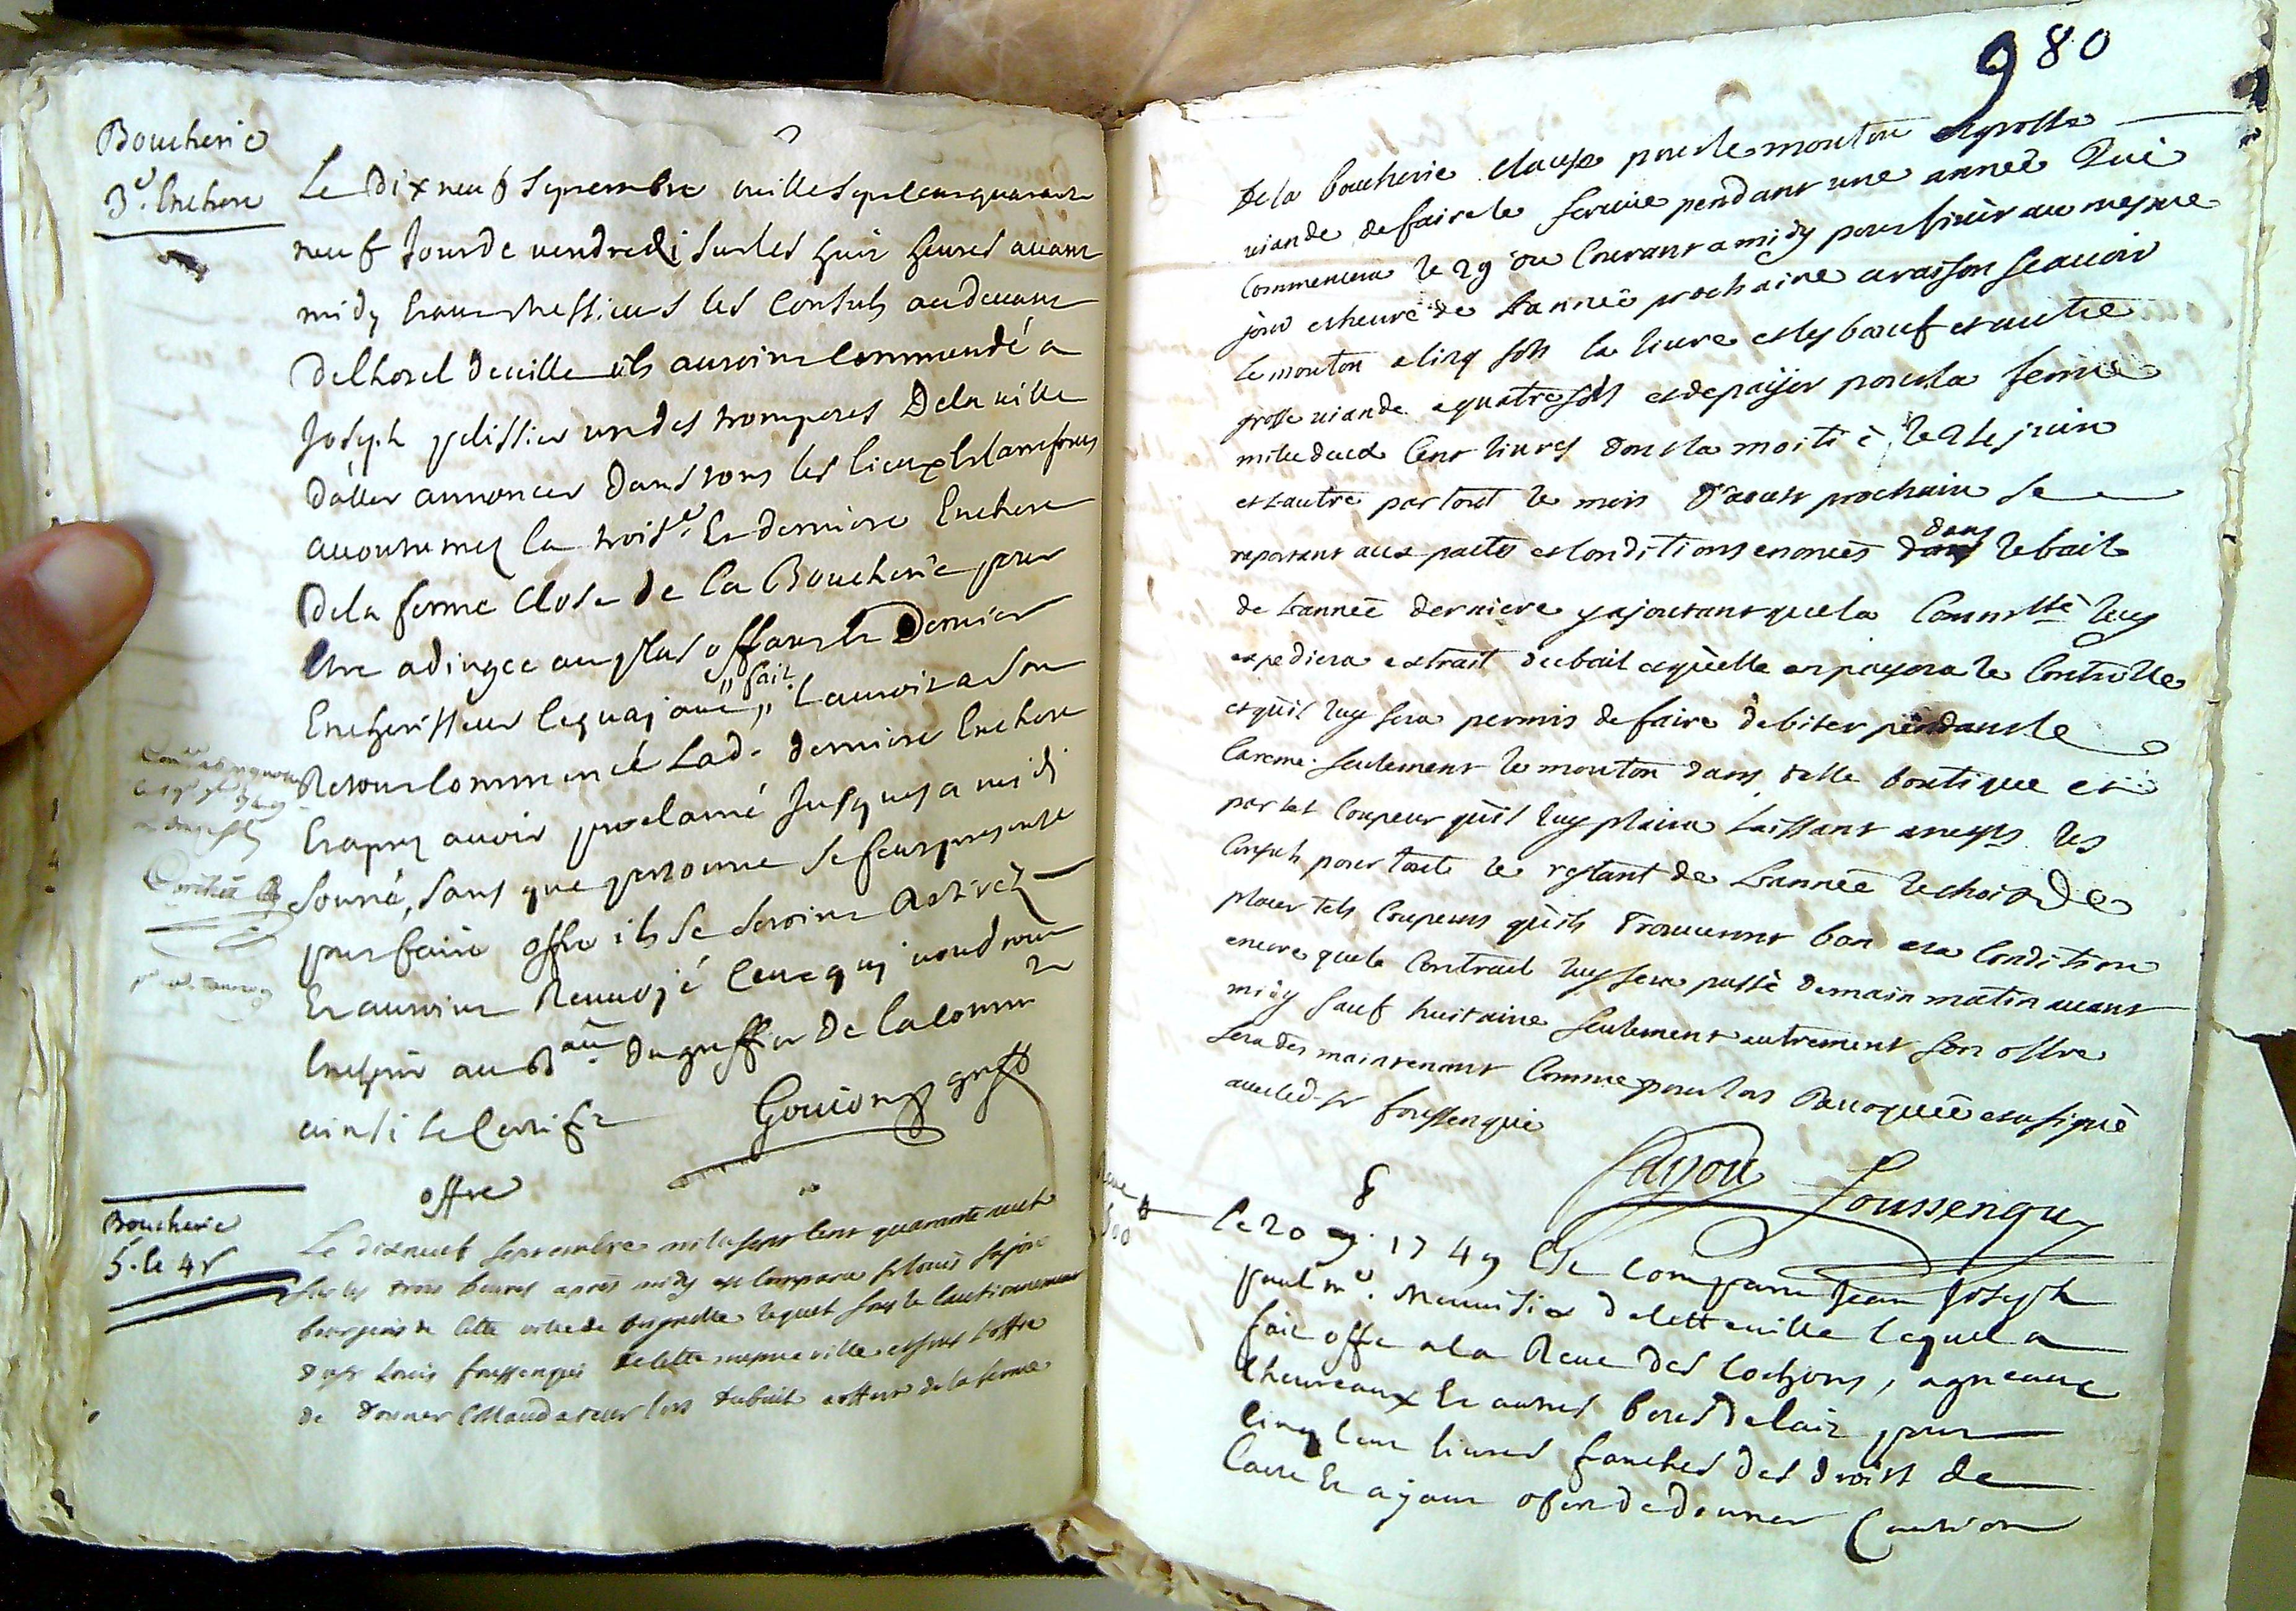 Boucherie
3e. Enchere
Le dix neuf Septembre mille Sept cens quarante
neuf Jour de vendredi Sur les huit heures avant
midy Etant Messieurs les Consuls au devant
de lhotel de ville ils auroint Commandé a
Joseph pelissier un des trompetes de la ville
d'aller annoncer dans tous les lieux Et carrefours
accoutumez la troise. Et derniere Enchere
de la ferme Close de la Boucherie pour
Etre adjugée au plus offrant Et Dernier
Encherisseur lequaj ant fait Lauroit a Son
Retour Commencé Lad. derniere Enchere
Et aprez avoir proclamé Jusques a midi
Sonné, sans que personne se feut presenté
pour faire offre ils se seroint Retirez
Et auroint Renvojé Ceux qui voudront
Encherir au Bau. du greffier de la Commté
ainsi le Certifie
Gouion greff
Boucherie
5. le 4s
offre
Le dixneuf Septembre mile sept cent quarante neuf
Sur les trois heures apres midy est comparu Sr Louis
bourgeois de cette ville de lequel sous le Cautionnement
du Sr Louis foussenqui de cette mesme ville et sous L'offre
de donner lors du bail a offert de la ferme
980
de la boucherie clause pour le mouton et grosse
viande de faire le service pendant une année Qui
Commencera le 29 du Courant a midy pour finir au mesme
jour et heure de Lannée prochaine a raison scavoir
Le mouton a cinq sols la livre et les bœuf et autre
grosse viande a quatre sols et de payer pour la ferme
mile deux Cent livres dont la moitié le 24 juin
et Lautre par tout le mois d'aoust prochain se
raportant aux pactes et Conditions enoncés dans dans le bail
de Lannée derniere y ajoutant que la Commté luy
expediera extrait du bail et qu'elle en payera le Controlle
et qu'il luy sera permis de faire debiter pendant le
Careme Seulement le mouton dans telle boutique et
par tel Coupeur qu'il luy plaira Laissant a messrs les
Consuls pour tout le restant de Lannée le choix De
placer tels Coupeurs qu'ils Trouveront bon et a Condition
encore que le Contract luy sera passé demain matin avant
midy sauf huitaine Seulement autrement son offre
sera des maintenant Comme pour lors Revoquée et a signé
avec led. Sr foussenqui
Foussenquy
500
Le 20 1749 Est Comparu Jean Joseph
paul me. Menuisier de cette ville lequel a
fait offre a la Reve des Cochons, agneaux
Chevreaux Et autres betes de lait pour
Cinq Cent livres franches des droits de
Et a jour offert de donner Caution